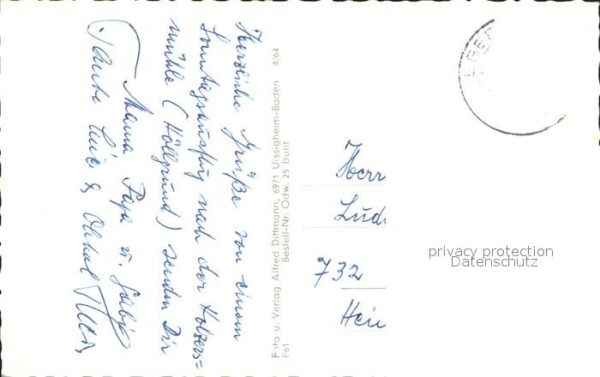 Herzliche Grüße von einem
Sonntagsausflug nach der Holzers=
mühle (Höllgrund) senden Dir
Mama Papa u. Gabi
Tante Luis & Onkel
Foto u. Verlag Alfred Dittmann, 6971 Uissigheim-Baden 4/64
F61 Bestell-Nr. Odw. 25 bunt
Herr
Lud
732
Hei
EBER
privacy protection
Datenschutz